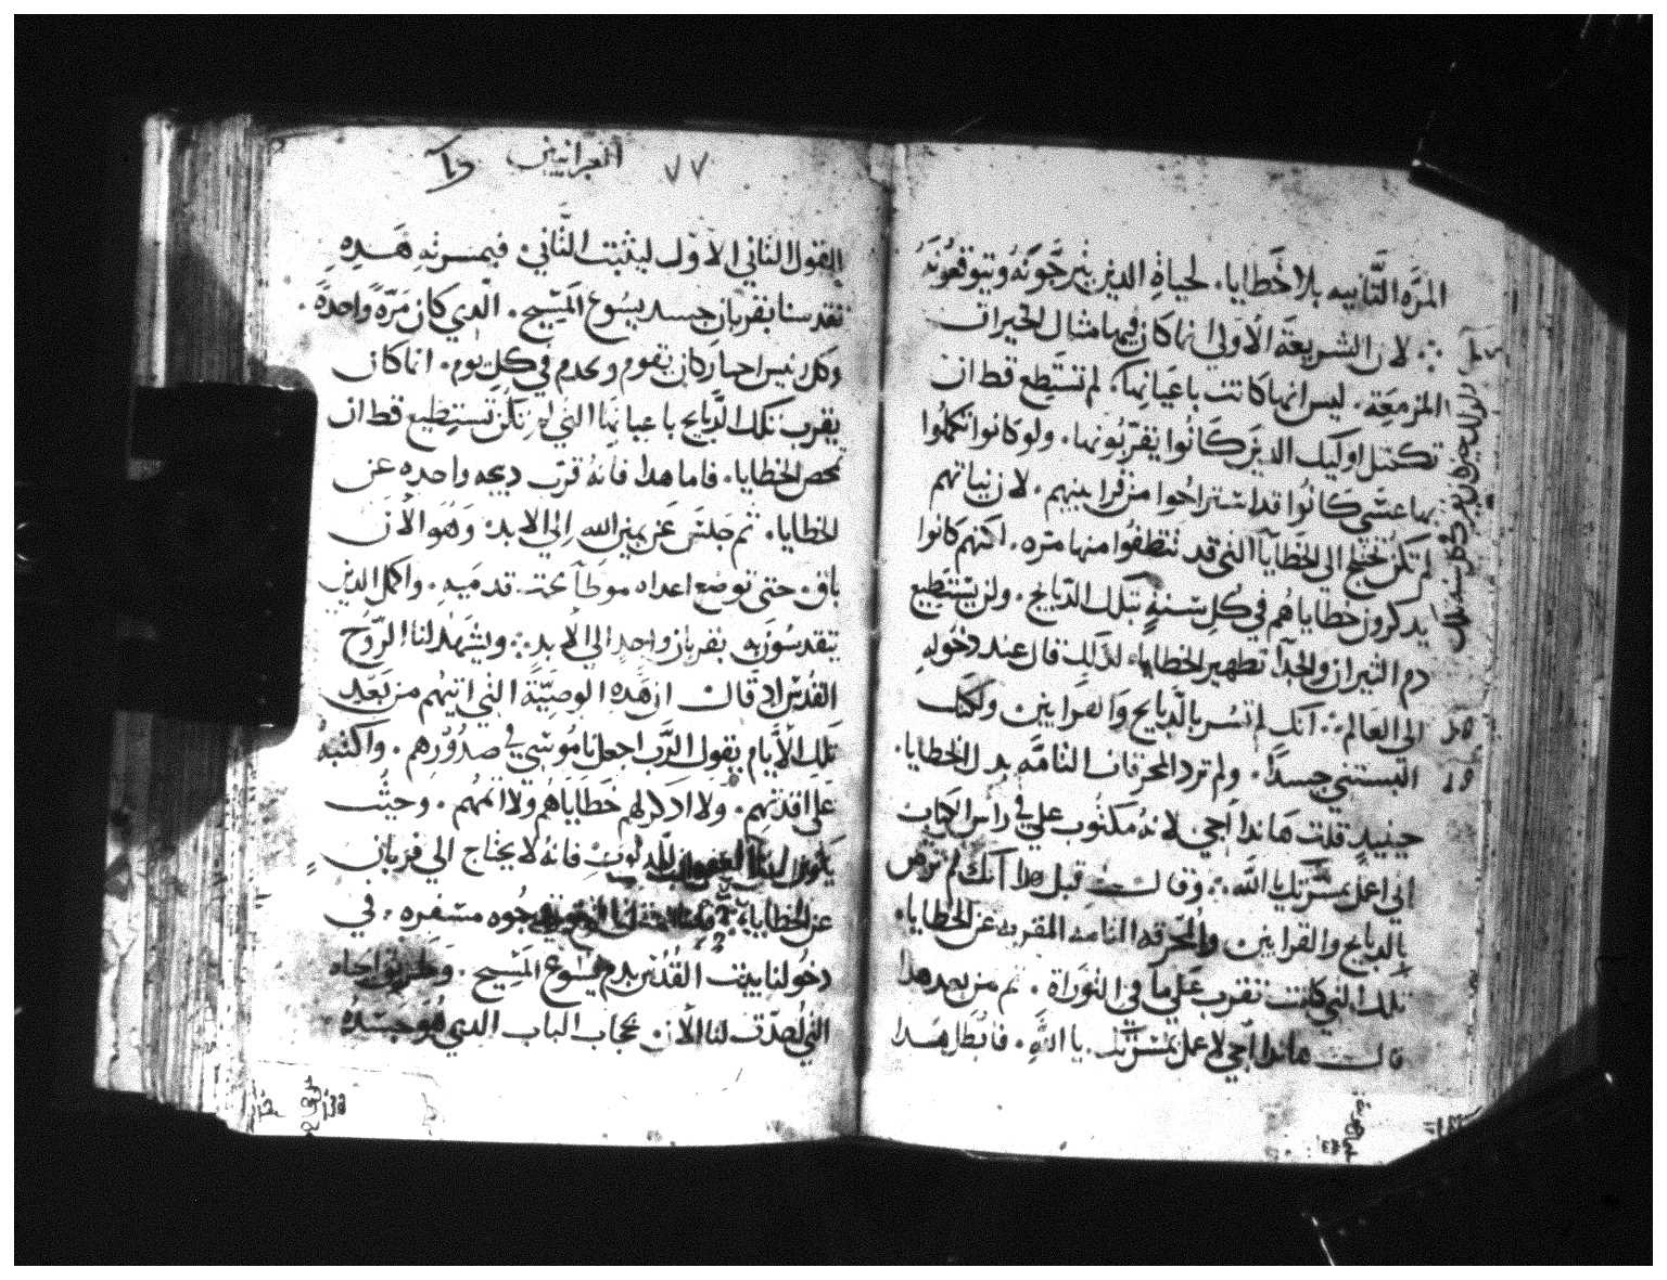 المرَّه التَّانيه بلا خَطايا. لحياةِ الدين يَترجَّونَهُ ويتوقعونَهُ
لان الشريعَة الاَولي انما كَان فيها مثال الخيرات
المزمعَة. ليس انها كانت باعيَانِها. لم تستَطِع قط ان
تكتمل اوليك الدين كَانُوا يقرّبُونها. ولو كانوا تكملُوا
بها عسَي كَانُوا قد استراحُوا من قرابينهم. لان نياتهم
لم تكن تحتج الي الخطايا التي قد تنظفُوا منها مره. لكنهم كانوا
يدكرون خطاياهُم في كُل سَنةٍ بتلك الدبايح. ولن يستطيع
دم الثيران والجدآ تطهير الخطايا. لدَلك قال عند دخُولهِ
الي العَالم. انك لم تسُر بالدَّبايح وَالقرابين ولكنك
البستني جسدًا. ولم ترد المحرقات التامَّه بدل الخطايا.
حينيدٍ قلت هَاندا اَجي لانهُ مكتُوب علي في راس الكتاب
اني اعمل بمسَرتك يا اللَه. وقالت قبل هدا انك لم ترض
بالدبايح والقرابين والمحرقه التامه المقربه عن الخطايا.
تلك التي كانت تتقرب عَلي ما في التورَاة. ثم من بعد هدا
قالت هاندا اَجي لاعمل بمسَرَّتك يا اللَّهِ. فابطَل هَدا
العبرانيين
٧٧
القول الثاني الاَوّل ليثبت الثَّاني. فبمسرتهِ هَدِهِ
تقدسنا بقربان جسد يسُوع المَسِّيح. الدي كان مَرّةً واحدةً.
وكل رييس احبار كان يقوم ويخدم في كلِ يوم. انما كان
يقرب تلك الدَّبايح باعيانِها التي لم تكَن تستطيع قط ان
تمحص الخطايا. فاما هدا فانهُ قرّب دبيحه واحده عن
الخطايا. ثم جَلسَ عَن يمين الله اِلي الابد. وَهَو الاَن
باقٍ. حتي توضع اعداه موطَآ تحت قدمَيهِ. واكمل الدين
يتقدسُون به بقربان واحدٍ الي الاَبد. ويشَهدُ لنا الرّوُح
القدُس اد قال ان هَدهِ الوصِيّة التي اتيهُم من بَعد
تلك الاَيَّام يقول الرَّب اجعل نامُوسي في صدُوُرِهم. واكتبهُ
عَلي افدتهم. ولا ادكر لهم خَطاياهُم ولا اثمهُم. وحيثُ
فانهُ لا يحتاج الي قربان
عن الخطايا. بوجُوه مسَفره. في
دخُولنا بيت القُدُس بدم يسُوع المَسِّيح. وَطريق الحياه
التي لصدّت لنا الاَن بحجاب الباب الدِي هُو جسَدهُ